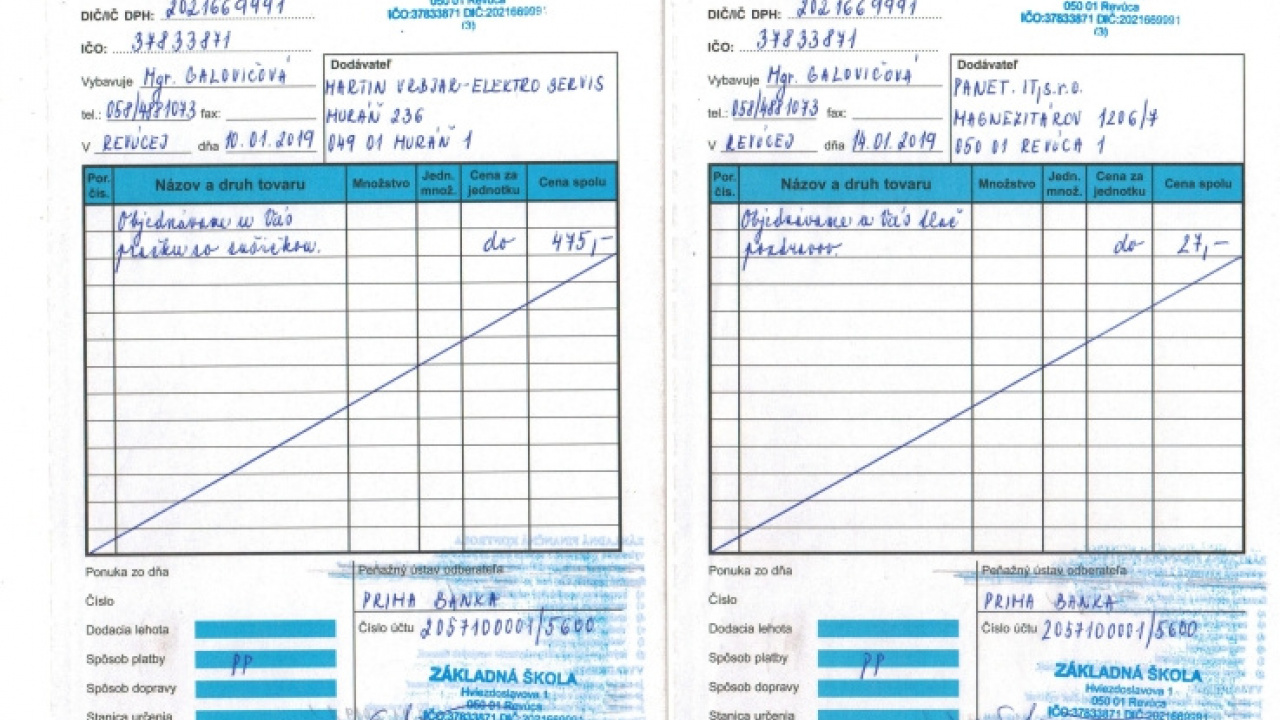 DIČ/IČ DPH: 2021669991
050 01 Revúca
IČO:37833871 DIČ:2021669991
(3)
IČO: 37833871
Vybavuje Mgr. GALOVIČOVÁ
tel.: 058/4881073 fax:
V REVÚCEJ dňa 10.01.2019
Dodávateľ
MARTIN VRBJAR-ELEKTRO SERVIS
MURÁŇ 236
049 01 MURÁŇ 1
Por. čís. Názov a druh tovaru Množstvo Jedn. množ. Cena za jednotku Cena spolu
Objednávame u Vás
práčku so sušičkou. do 475,-
Ponuka zo dňa
Číslo
Dodacia lehota
Spôsob platby PP
Spôsob dopravy
Stanica určenia
Peňažný ústav odberateľa
PRIMA BANKA
Číslo účtu 2057100001/5600
ZÁKLADNÁ ŠKOLA
Hviezdoslavova 1
050 01 Revúca
IČO:37833871 DIČ:2021669991
DIČ/IČ DPH: 2021669991
050 01 Revúca
IČO:37833871 DIČ:2021669991
(3)
IČO: 37833871
Vybavuje Mgr. GALOVIČOVÁ
tel.: 058/4881073 fax:
V REVÚCEJ dňa 14.01.2019
Dodávateľ
PANET. IT,s.r.o.
MAGNEZITÁROV 1206/7
050 01 REVÚCA 1
Por. čís. Názov a druh tovaru Množstvo Jedn. množ. Cena za jednotku Cena spolu
Objednávame u Vás tlač
pozdravov. do 27,-
Ponuka zo dňa
Číslo
Dodacia lehota
Spôsob platby PP
Spôsob dopravy
Stanica určenia
Peňažný ústav odberateľa
PRIMA BANKA
Číslo účtu 2057100001/5600
ZÁKLADNÁ ŠKOLA
Hviezdoslavova 1
050 01 Revúca
IČO:37833871 DIČ:2021669991